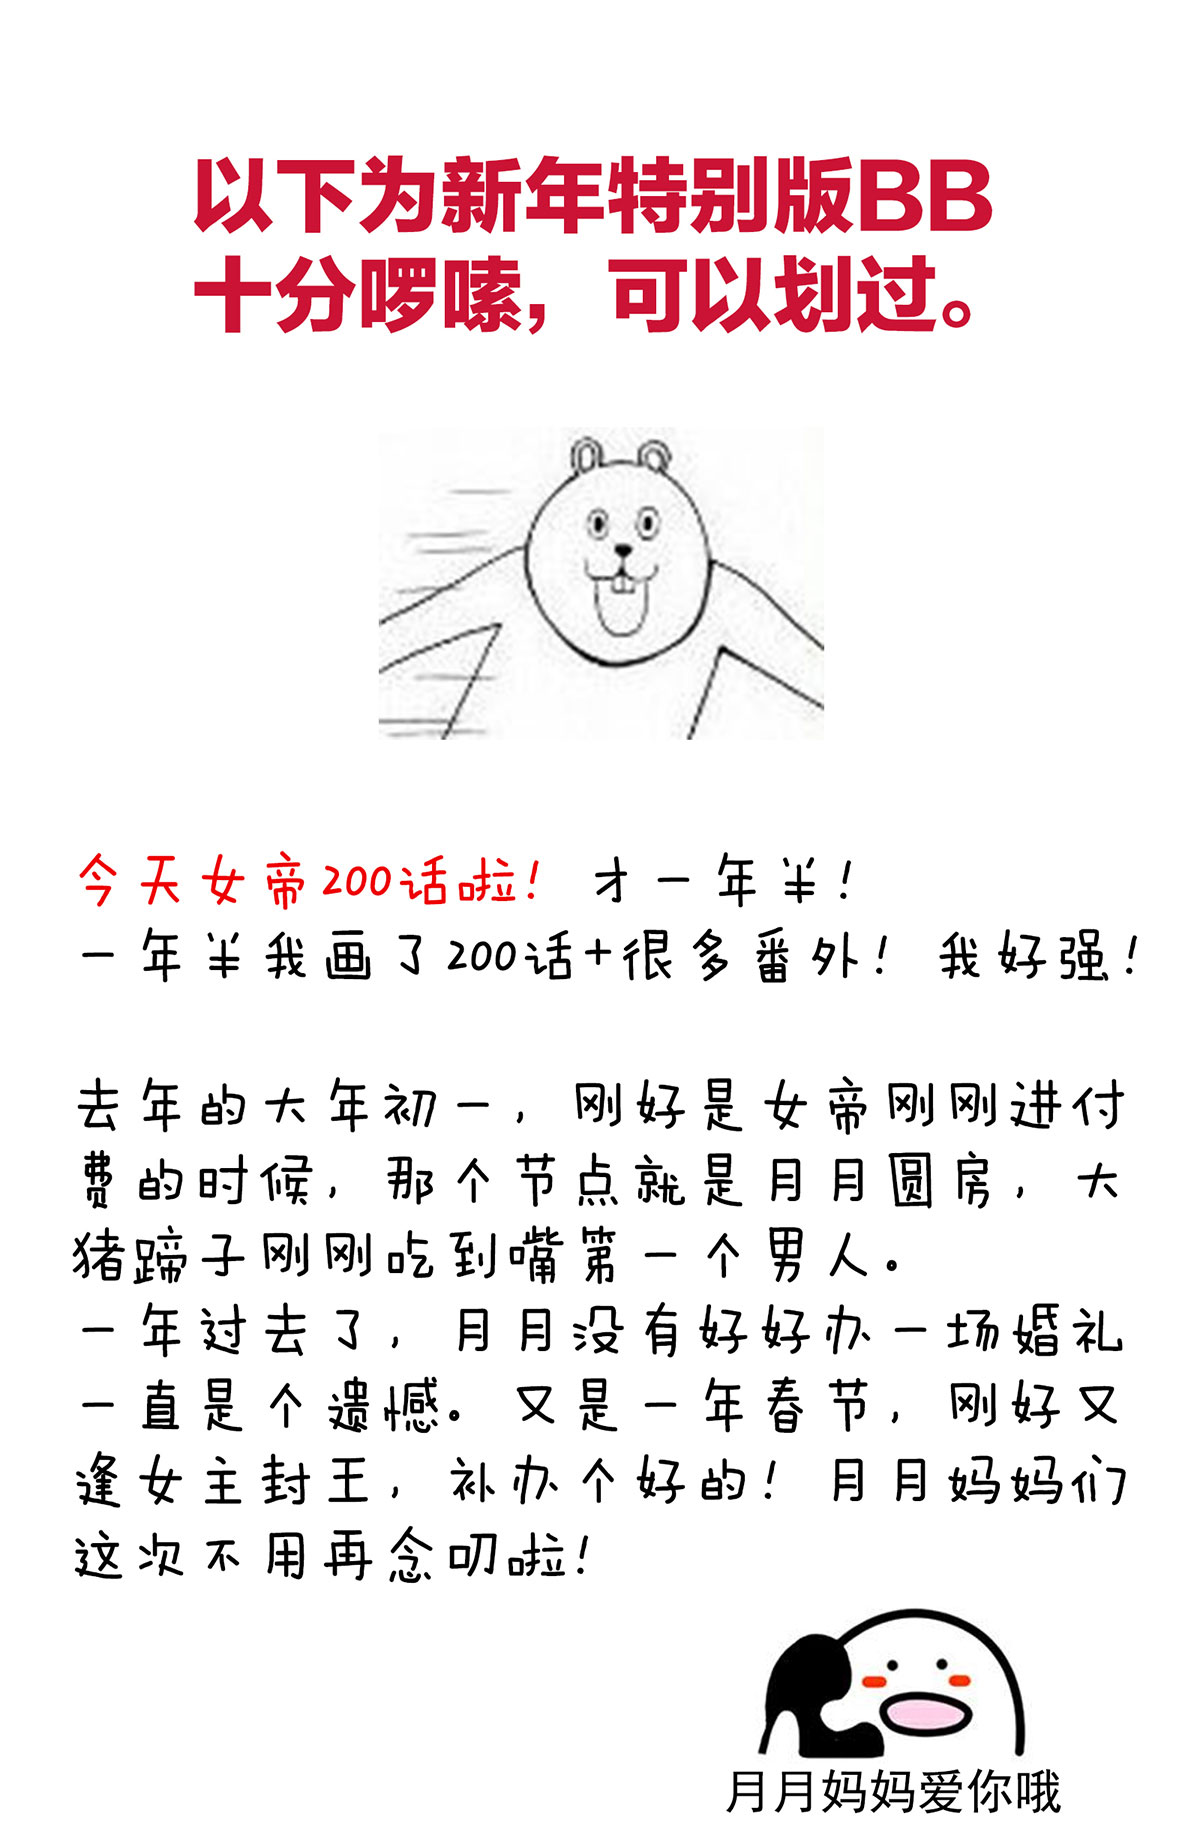 以下为新年特别版BB
十分啰嗦，可以划过。
今天女帝200话啦！才一年半！
一年半我画了200话+很多番外！我好强！
去年的大年初一，刚好是女帝刚刚进付
费的时候，那个节点就是月月圆房，大
猪蹄子刚刚吃到嘴第一个男人。
一年过去了，月月没有好好办一场婚礼
一直是个遗憾。又是一年春节，刚好又
逢女主封王，补办个好的！月月妈妈们
这次不用再念叨啦！
月月妈妈爱你哦